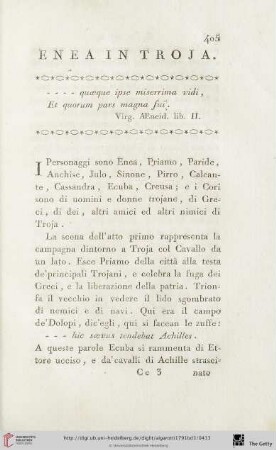 405
ENEA IN TROJA.
- - - - quæque ipse miserrima vidi,
Et quorum pars magna fui.
Virg. Æneid. lib. II.
I Personaggi sono Enea, Priamo, Paride,
Anchise, Julo, Sinone, Pirro, Calcan-
te, Cassandra, Ecuba, Creusa; e i Cori
sono di uomini e donne trojane, di Gre-
ci, di dei, altri amici ed altri nimici di
Troja.
La scena dell'atto primo rappresenta la
campagna dintorno a Troja col Cavallo da
un lato. Esce Priamo della città alla testa
de'principali Trojani, e celebra la fuga dei
Greci, e la liberazione della patria. Trion-
fa il vecchio in vedere il lido sgombrato
di nemici e di navi. Qui era il campo
de'Dolopi, dic'egli, qui si facean le zuffe:
- - - hic sævus tendebat Achilles.
A queste parole Ecuba si rammenta di Et-
tore ucciso, e da'cavalli di Achille strasci-
Cc 3 nato
http://digi.ub.uni-heidelberg.de/diglit/algarotti1791bd3/0411
The Getty